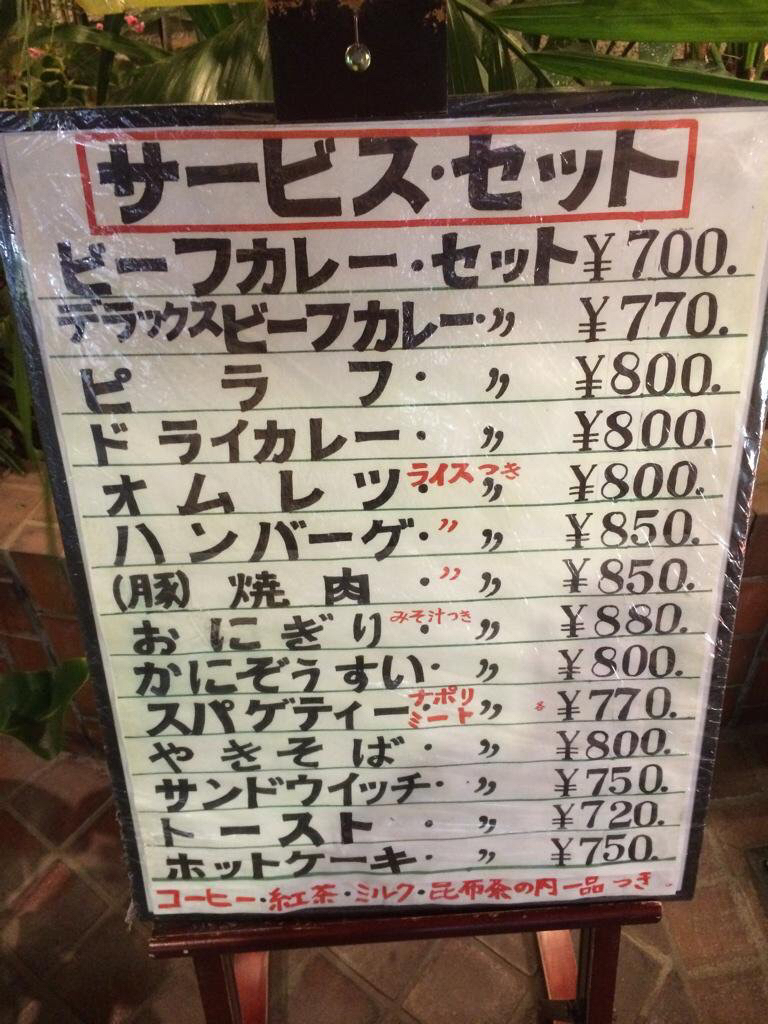 サービス・セット
ビーフカレー・セット ¥700.
デラックスビーフカレー・〃 ¥770.
ピラフ・〃 ¥800.
ドライカレー・〃 ¥800.
オムレツ・ライスつき 〃 ¥800.
ハンバーグ・〃 〃 ¥850.
(豚)焼肉・〃 〃 ¥850.
おにぎり・みそ汁つき 〃 ¥880.
かにぞうすい・〃 ¥800.
スパゲティー・ナポリ ミート 〃 各¥770.
やきそば・〃 ¥800.
サンドウイッチ・〃 ¥750.
トースト・〃 ¥720.
ホットケーキ・〃 ¥750.
コーヒー・紅茶・ミルク・昆布茶の内一品つき